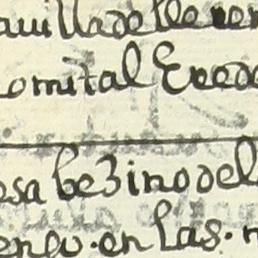 auilladelleren
comital Erede
osa bezino del
engo. en las.